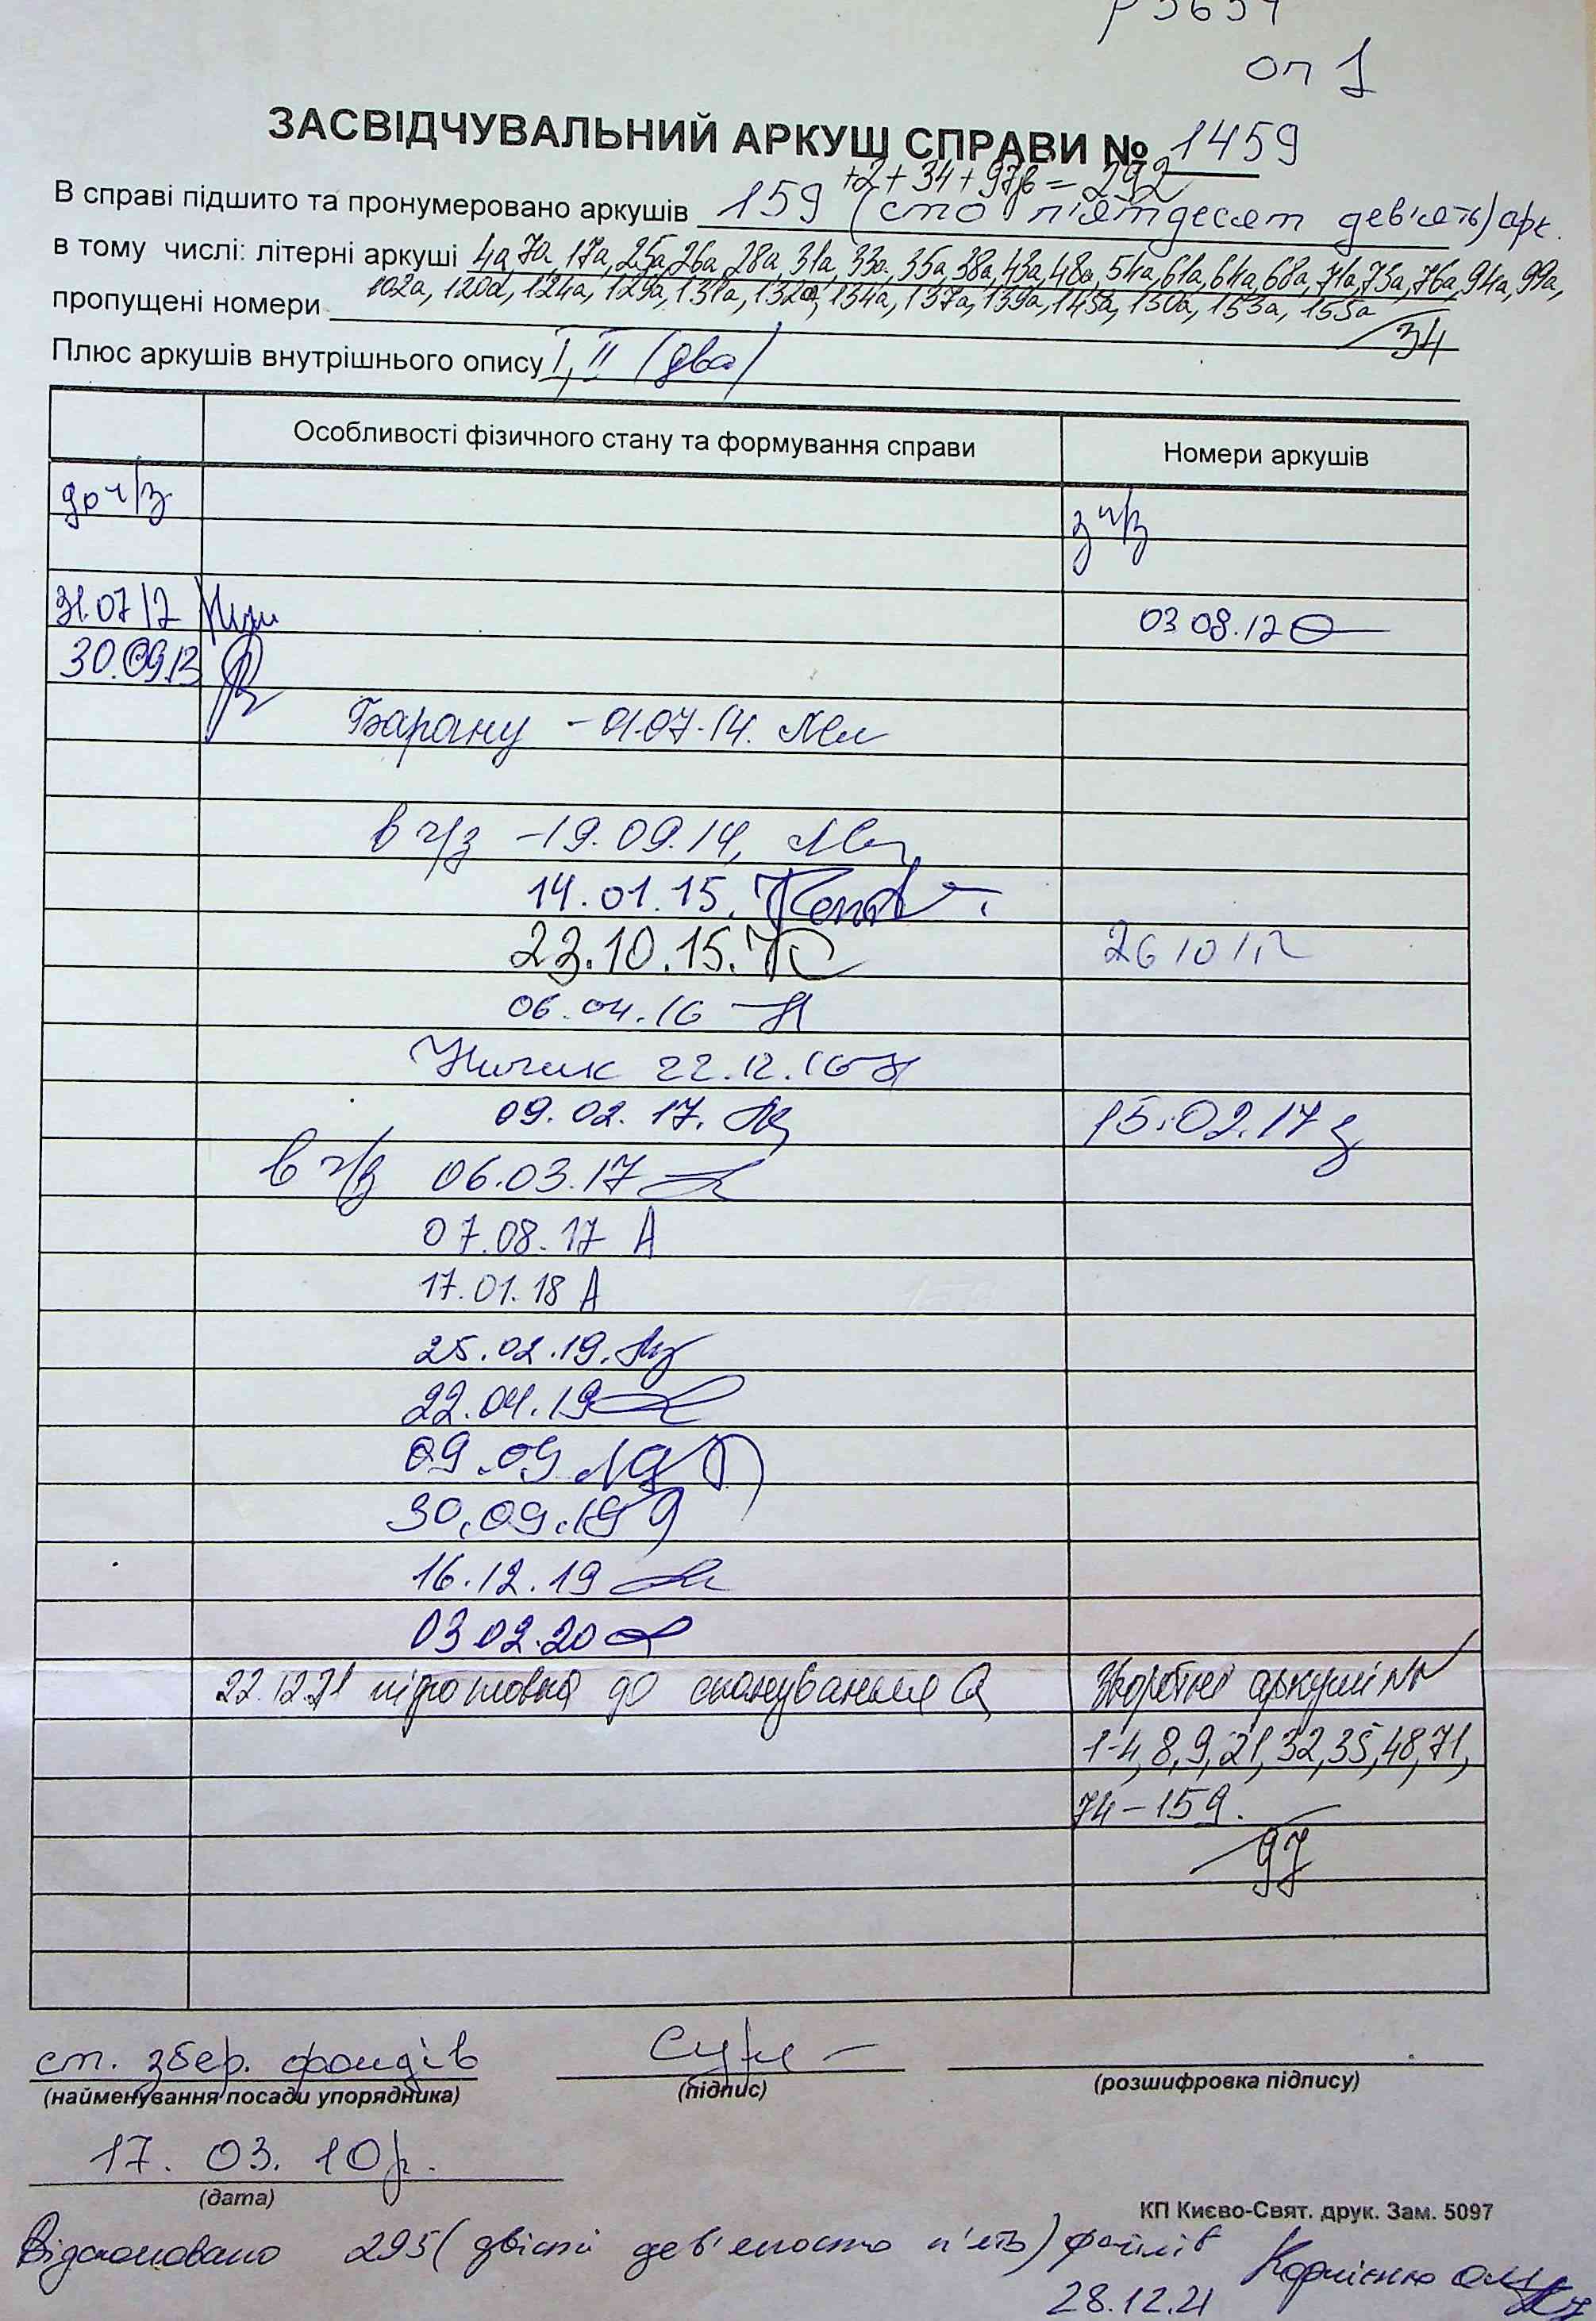 оп 1
ЗАСВІДЧУВАЛЬНИЙ АРКУШ СПРАВИ № 1459
+2+34+97зв = 292
В справі підшито та пронумеровано аркушів 159 (сто п'ятдесят дев'ять) арк.
в тому числі: літерні аркуші 4а, 7а, 17а, 25а, 26а, 28а, 31а, 33а, 35а, 38а, 43а, 48а, 54а, 61а, 64а, 68а, 71а, 73а, 76а, 94а, 99а,
102а, 120а, 124а, 129а, 131а, 132а, 134а, 137а, 139а, 145а, 150а, 153а, 155а
пропущені номери
34
Плюс аркушів внутрішнього опису I, II (два)
Особливості фізичного стану та формування справи
Номери аркушів
до ч/з
з ч/з
31.07.12
03 08.12
30.09.13
Барану - 01.07.14.
в ч/з - 19.09.14,
14.01.15.
23.10.15.
26 10 15
06.04.16
22.12.16
09.02.17.
15.02.17
в ч/з 06.03.17
07.08.17 А
17.01.18 А
25.02.19.
22.04.19
09.09.19
30.09.19
16.12.19
03 02.20
22.12.21 підготовка до сканування
Зворотні аркуші №№
1-4, 8, 9, 21, 32, 35, 48, 71,
74-159.
97
ст. збер. фондів
(найменування посади упорядника)
(підпис)
(розшифровка підпису)
17. 03. 10р.
(дата)
КП Києво-Свят. друк. Зам. 5097
Відскановано 295 (двісті дев'яносто п'ять) файлів Корнієнко
28.12.21